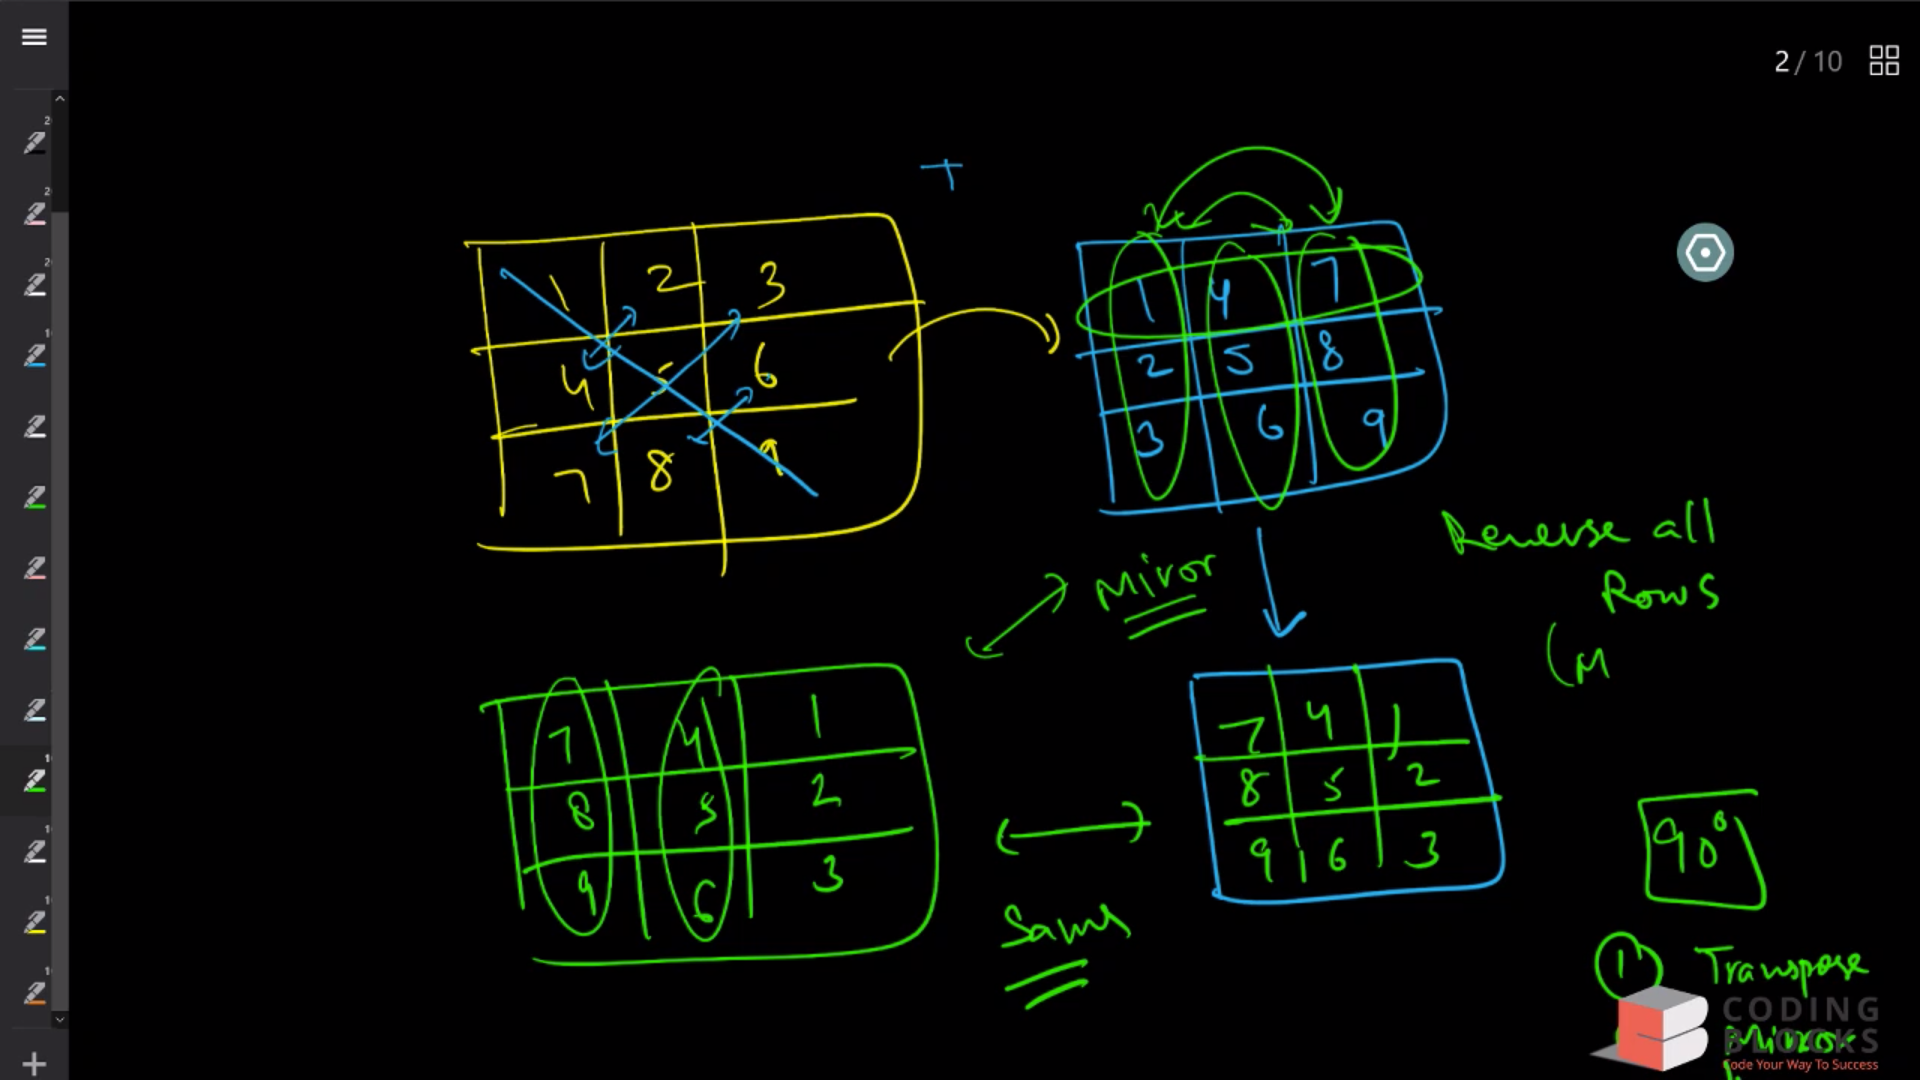 2 / 10
1 2 3
4 5 6
7 8 9
1 4 7
2 5 8
3 6 9
Reverse all
Rows
(M
Miror
7 4 1
8 5 2
9 6 3
7 4 1
8 5 2
9 6 3
Same
90°
1 Transpose
Mirror
CODING
BLOCKS
Code Your Way To Success